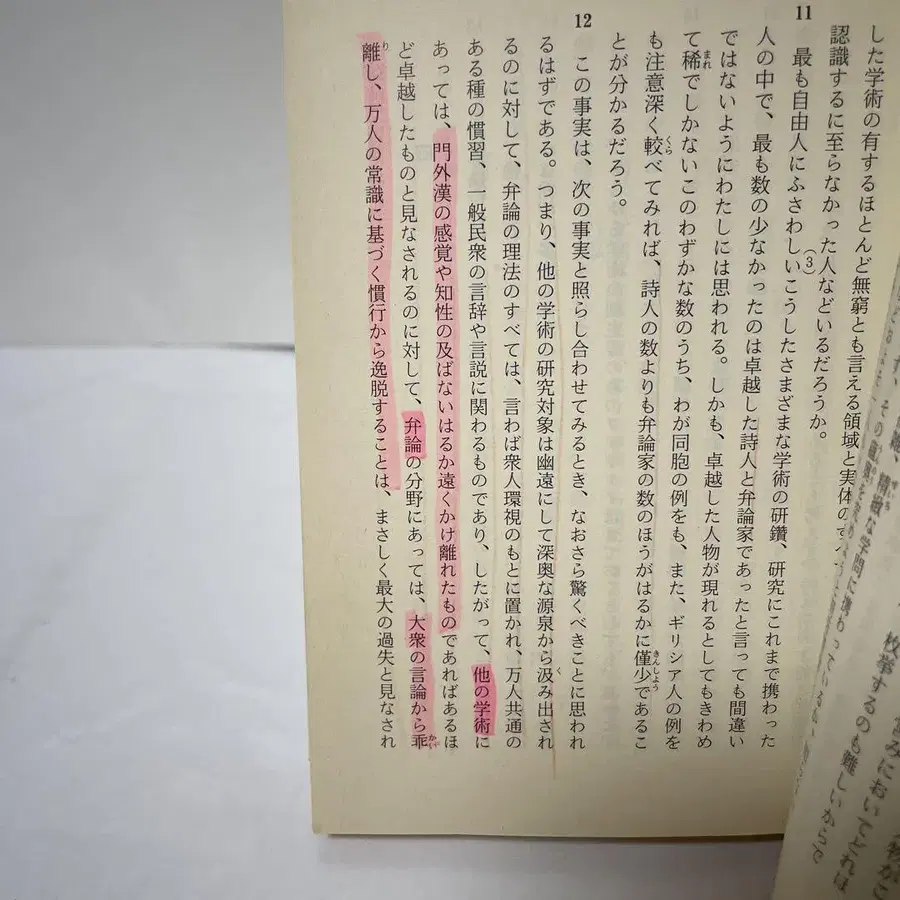 した学術の有するほとんど無窮とも言える領域と実体の
認識するに至らなかった人などいるだろうか。
11
最も自由人にふさわしいこうしたさまざまな学術の研鑽、研究にこれまで携わった
(3)
人の中で、最も数の少なかったのは卓越した詩人と弁論家であったと言っても間違い
ではないようにわたしには思われる。しかも、卓越した人物が現れるとしてもきわめ
て稀でしかないこのわずかな数のうち、わが同胞の例をも、また、ギリシア人の例を
まれ
も注意深く較べてみれば、詩人の数よりも弁論家の数のほうがはるかに僅少であるこ
くら
きんしょう
とが分かるだろう。
12
この事実は、次の事実と照らし合わせてみるとき、なおさら驚くべきことに思われ
るはずである。つまり、他の学術の研究対象は幽遠にして深奥な源泉から汲み出され
く
るのに対して、弁論の理法のすべては、言わば衆人環視のもとに置かれ、万人共通の
ある種の慣習、一般民衆の言辞や言説に関わるものであり、したがって、他の学術に
あっては、門外漢の感覚や知性の及ばないはるか遠くかけ離れたものであればあるほ
ど卓越したものと見なされるのに対して、弁論の分野にあっては、大衆の言論から乖
かい
離し、万人の常識に基づく慣行から逸脱することは、まさしく最大の過失と見なされ
り
枚挙するのも難しいからで
においてどれほ